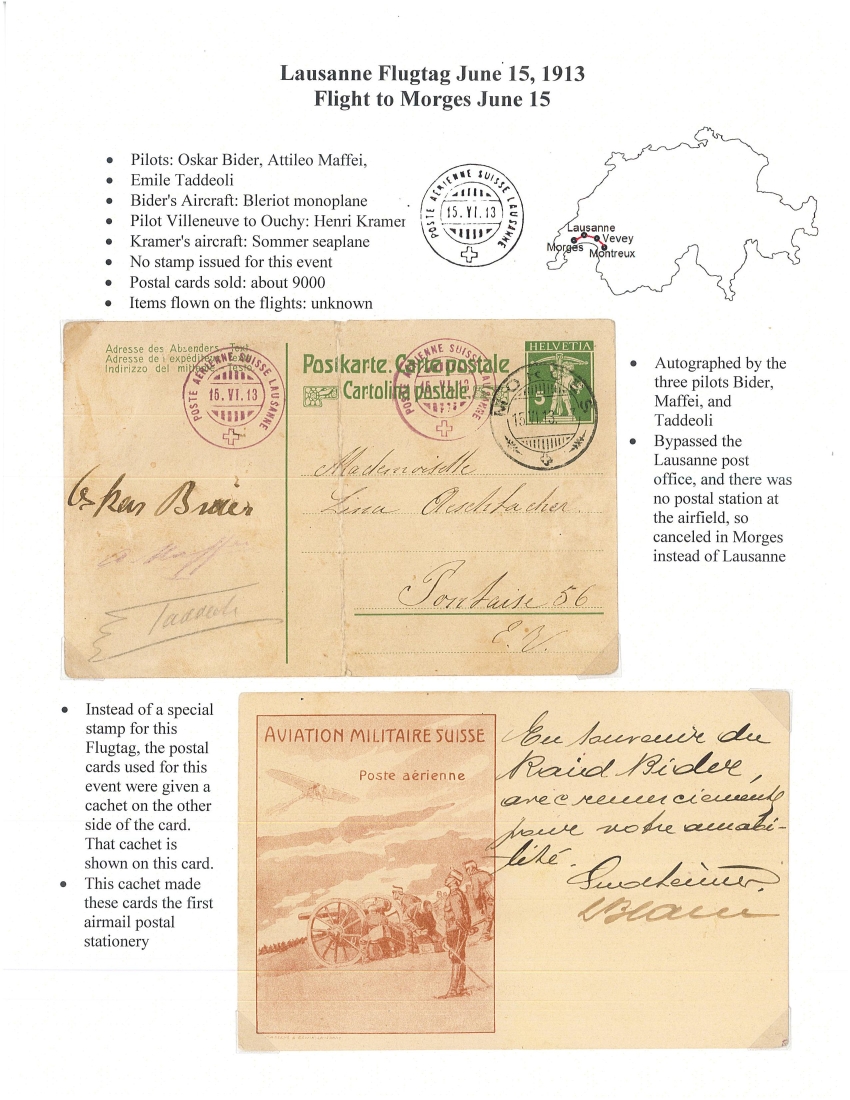 Lausanne Flugtag June 15, 1913
Flight to Morges June 15
• Pilots: Oskar Bider, Attileo Maffei,
• Emile Taddeoli
• Bider's Aircraft: Bleriot monoplane
• Pilot Villeneuve to Ouchy: Henri Kramer
• Kramer's aircraft: Sommer seaplane
• No stamp issued for this event
• Postal cards sold: about 9000
• Items flown on the flights: unknown
POSTE AÉRIENNE SUISSE LAUSANNE
15.VI.13
Lausanne
Vevey
Morges
Montreux
Adresse des Absenders. Text
Adresse de l'expéditeur. Texte
Indirizzo del mittente. Testo
POSTE AÉRIENNE SUISSE LAUSANNE
15.VI.13
Postkarte. Carte postale
Cartolina postale.
POSTE AÉRIENNE SUISSE LAUSANNE
15.VI.13
HELVETIA
5
MORGES
15.VI.13
Mademoiselle
Lina Aeschbacher.
Pontaise 56
E. V.
Oskar Bider
A. Maffei
E Taddeoli
• Autographed by the
three pilots Bider,
Maffei, and
Taddeoli
• Bypassed the
Lausanne post
office, and there was
no postal station at
the airfield, so
canceled in Morges
instead of Lausanne
• Instead of a special
stamp for this
Flugtag, the postal
cards used for this
event were given a
cachet on the other
side of the card.
That cachet is
shown on this card.
• This cachet made
these cards the first
airmail postal
stationery
AVIATION MILITAIRE SUISSE
Poste aérienne
En souvenir du
Raid Bider,
avec remerciements
pour votre amabi-
lité.